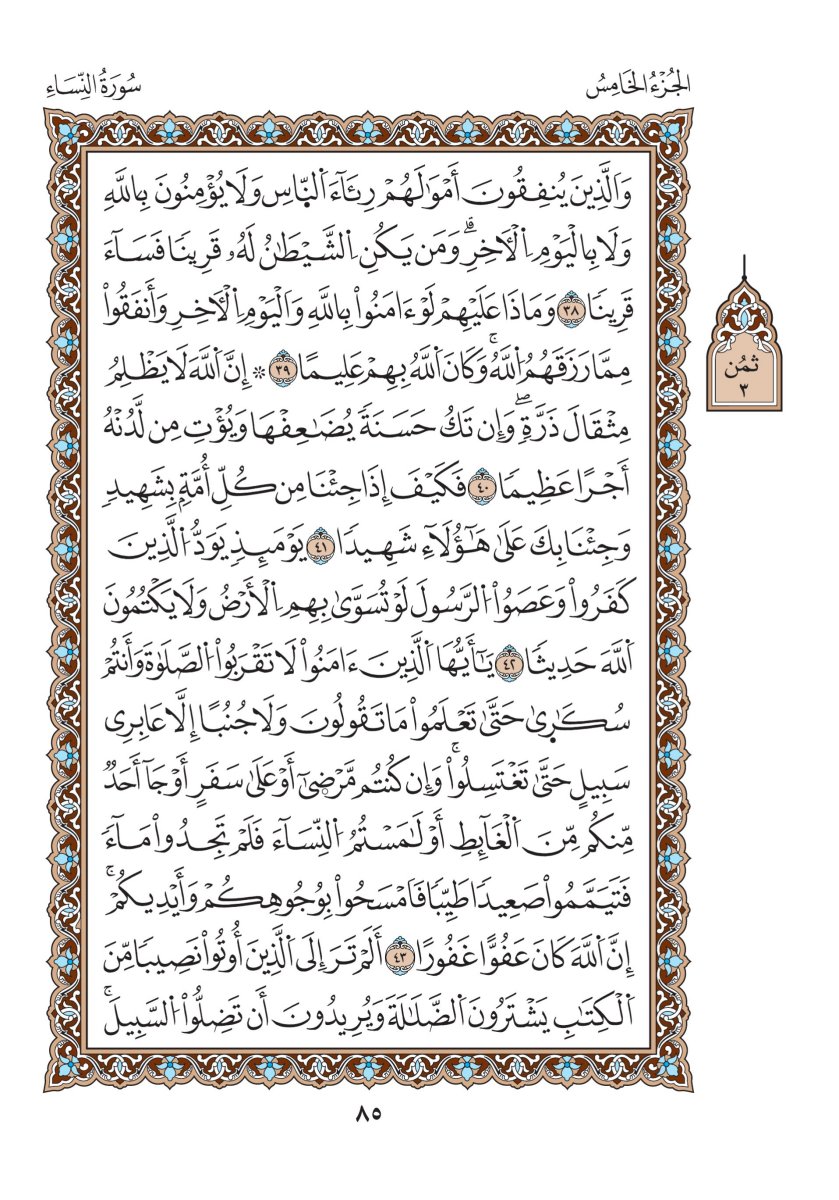 الجُزْءُ الخَامِسُ
سُورَةُ النِّسَاءِ
وَالَّذِينَ يُنفِقُونَ أَمْوَٰلَهُمْ رِئَآءَ اَ۬لنَّاسِ وَلَا يُؤْمِنُونَ بِاللَّهِ
وَلَا بِالْيَوْمِ اِ۬لْأٓخِرِۗ وَمَن يَكُنِ اِ۬لشَّيْطَٰنُ لَهُۥ قَرِينٗا فَسَآءَ
قَرِينٗا ٣٨ وَمَاذَا عَلَيْهِمْ لَوْ ءَامَنُواْ بِاللَّهِ وَالْيَوْمِ اِ۬لْأٓخِرِ وَأَنفَقُواْ
مِمَّا رَزَقَهُمُ اُ۬للَّهُۚ وَكَانَ اَ۬للَّهُ بِهِمْ عَلِيمًا ٣٩ ۞ إِنَّ اَ۬للَّهَ لَا يَظْلِمُ
مِثْقَالَ ذَرَّةٖۖ وَإِن تَكُ حَسَنَةٗ يُضَٰعِفْهَا وَيُؤْتِ مِن لَّدُنْهُ
أَجْرًا عَظِيمٗا ٤٠ فَكَيْفَ إِذَا جِئْنَا مِن كُلِّ أُمَّةِۭ بِشَهِيدٖ
وَجِئْنَا بِكَ عَلَىٰ هَٰٓؤُلَآءِ شَهِيدٗا ٤١ يَوْمَئِذٖ يَوَدُّ اُ۬لَّذِينَ
كَفَرُواْ وَعَصَوُاْ اُ۬لرَّسُولَ لَوْ تُسَوَّىٰ بِهِمِ اِ۬لْأَرْضُ وَلَا يَكْتُمُونَ
اَ۬للَّهَ حَدِيثٗا ٤٢ يَٰٓأَيُّهَا اَ۬لَّذِينَ ءَامَنُواْ لَا تَقْرَبُواْ اُ۬لصَّلَوٰةَ وَأَنتُمْ
سُكَٰرٜىٰ حَتَّىٰ تَعْلَمُواْ مَا تَقُولُونَ وَلَا جُنُبًا إِلَّا عَابِرِي
سَبِيلٍ حَتَّىٰ تَغْتَسِلُواْۚ وَإِن كُنتُم مَّرْضَىٰٓ أَوْ عَلَىٰ سَفَرٍ أَوْ جَآ أَحَدٞ
مِّنكُم مِّنَ اَ۬لْغَآئِطِ أَوْ لَٰمَسْتُمُ اُ۬لنِّسَآءَ فَلَمْ تَجِدُواْ مَآءٗ
فَتَيَمَّمُواْ صَعِيدٗا طَيِّبٗا فَامْسَحُواْ بِوُجُوهِكُمْ وَأَيْدِيكُمْۚ
إِنَّ اَ۬للَّهَ كَانَ عَفُوًّا غَفُورًا ٤٣ أَلَمْ تَرَ إِلَى اَ۬لَّذِينَ أُوتُواْ نَصِيبٗا مِّنَ
اَ۬لْكِتَٰبِ يَشْتَرُونَ اَ۬لضَّلَٰلَةَ وَيُرِيدُونَ أَن تَضِلُّواْ اُ۬لسَّبِيلَۚ
ثمُن
٣
٨٥